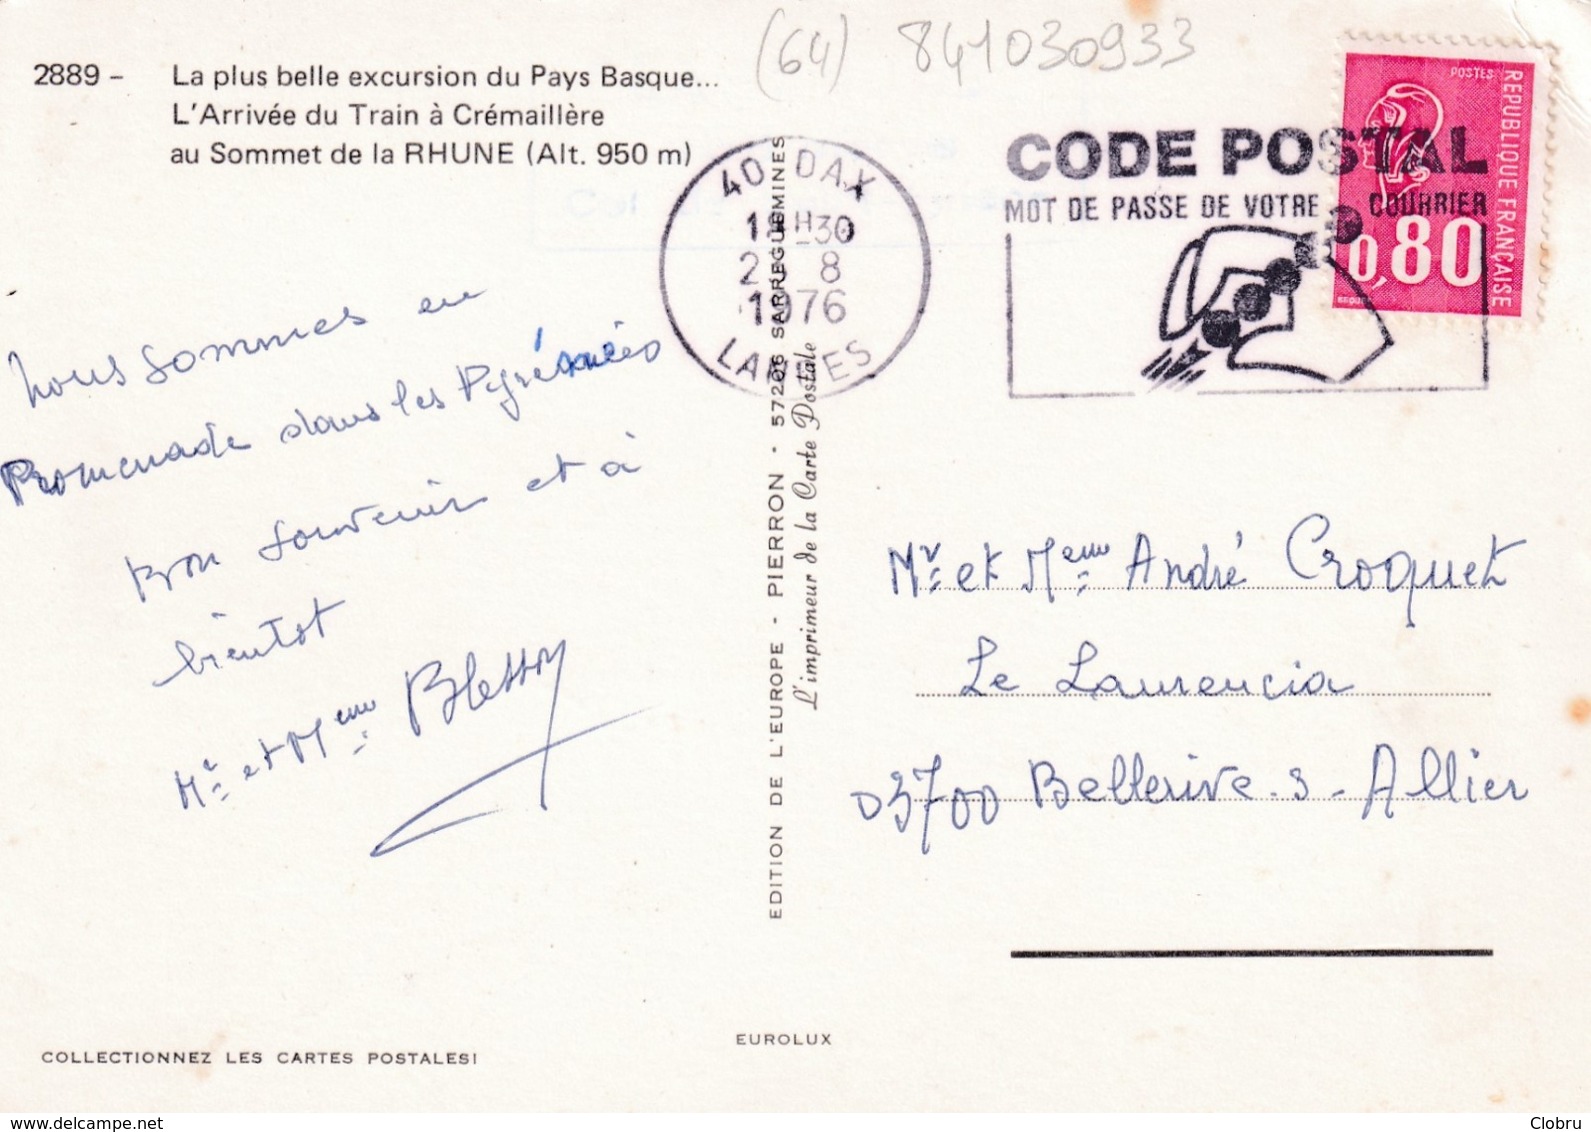 (64) 841030933
2889 - La plus belle excursion du Pays Basque...
L'Arrivée du Train à Crémaillère
au Sommet de la RHUNE (Alt. 950 m)
40 DAX
30
8
1976
LANDES
CODE POSTAL
MOT DE PASSE DE VOTRE COURRIER
POSTES
REPUBLIQUE FRANÇAISE
0,80
Nous sommes en
Promenade dans les Pyrénées
bon souvenir et à
bientot
Mr et Meme
EDITION DE L'EUROPE - PIERRON - 57206 SARREGUEMINES
L'imprimeur de la Carte Postale
Mr et Meme André Croquet
Le Laurencia
03700 Bellerive-s-Allier
EUROLUX
COLLECTIONNEZ LES CARTES POSTALES!
www.delcampe.net
Clobru